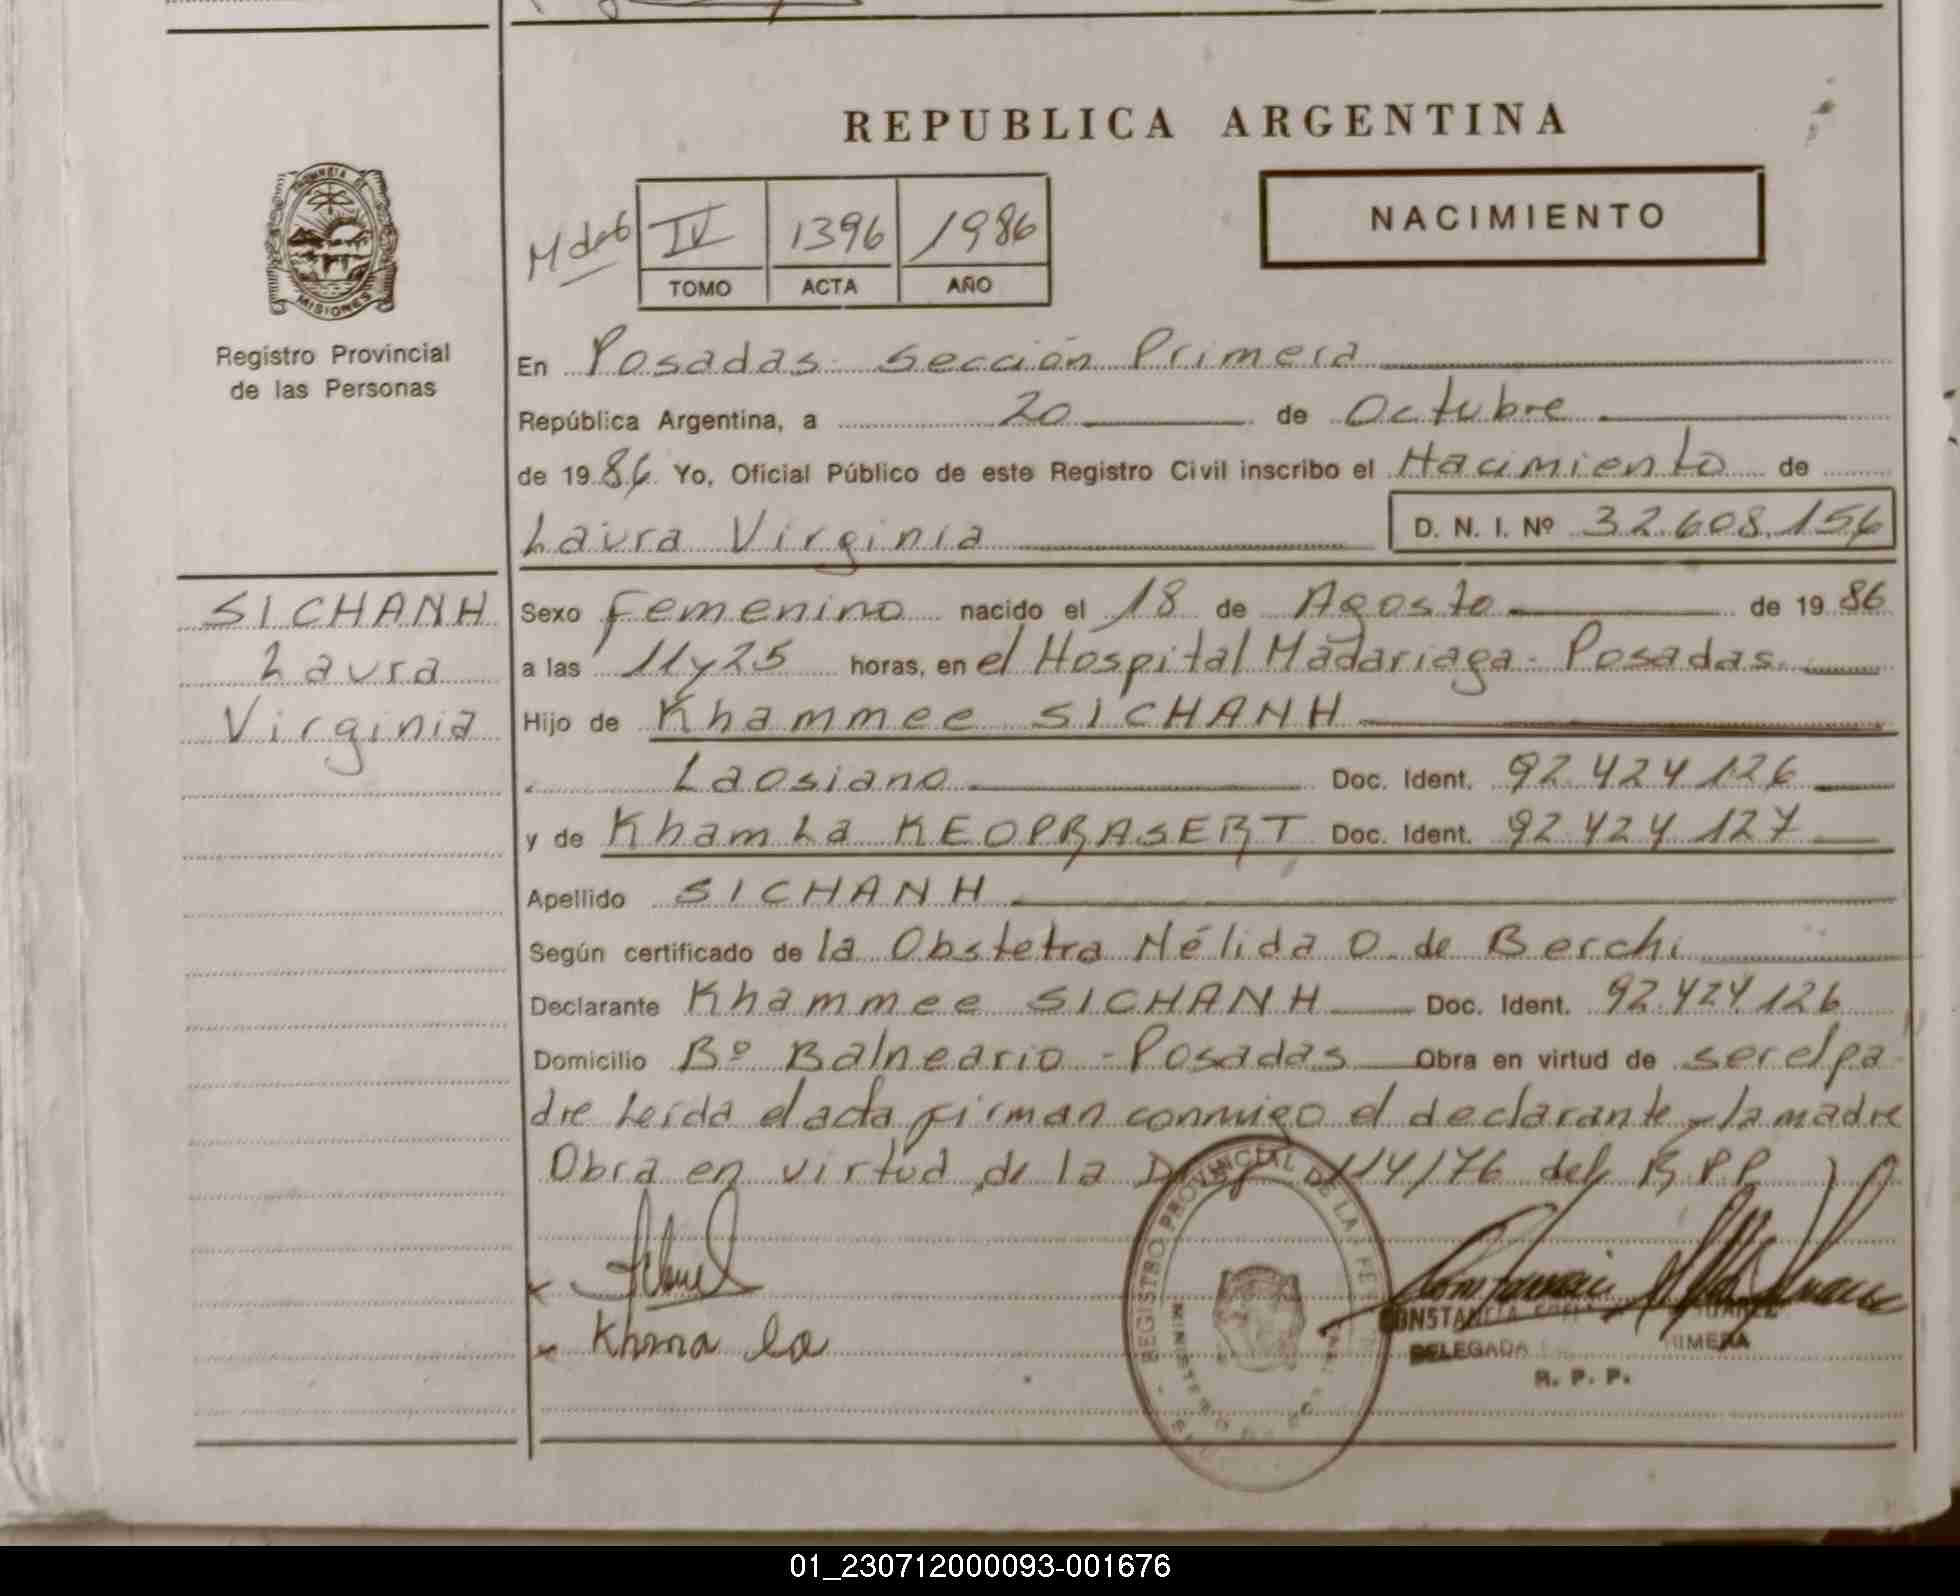 REPUBLICA ARGENTINA
PROVINCIA DE
MISIONES
Registro Provincial
de las Personas
IV 1396 1986
TOMO ACTA AÑO
NACIMIENTO
En Posadas Sección Primera
República Argentina, a 20 de Octubre
de 1986 Yo, Oficial Público de este Registro Civil inscribo el Nacimiento de
Laura Virginia D. N. I. Nº 32.608.156
SICHANH
Laura
Virginia
Sexo Femenino nacido el 18 de Agosto de 1986
a las 11 y 25 horas, en el Hospital Madariaga - Posadas
Hijo de Khammee SICHANH
Laosiano Doc. Ident. 92.424.126
y de Khamla KEOPRASERT Doc. Ident. 92.424.127
Apellido SICHANH
Según certificado de la Obstetra Nélida O. de Berchi
Declarante Khammee SICHANH Doc. Ident. 92.424.126
Domicilio Bº Balneario - Posadas Obra en virtud de ser el pa
dre Leída el acta firman conmigo el declarante y la madre
Obra en virtud de la 114/76 del R.P.P.
REGISTRO PROVINCIAL DE LA
Khma la
CONSTANCIA
DELEGADA PRIMERA
R. P. P.
01_230712000093-001676